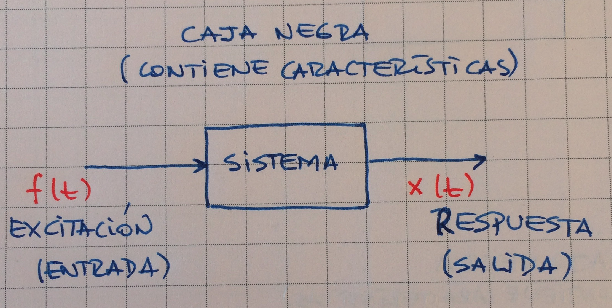 CAJA NEGRA
(CONTIENE CARACTERÍSTICAS)
SISTEMA
f(t)
x(t)
EXCITACIÓN
(ENTRADA)
RESPUESTA
(SALIDA)